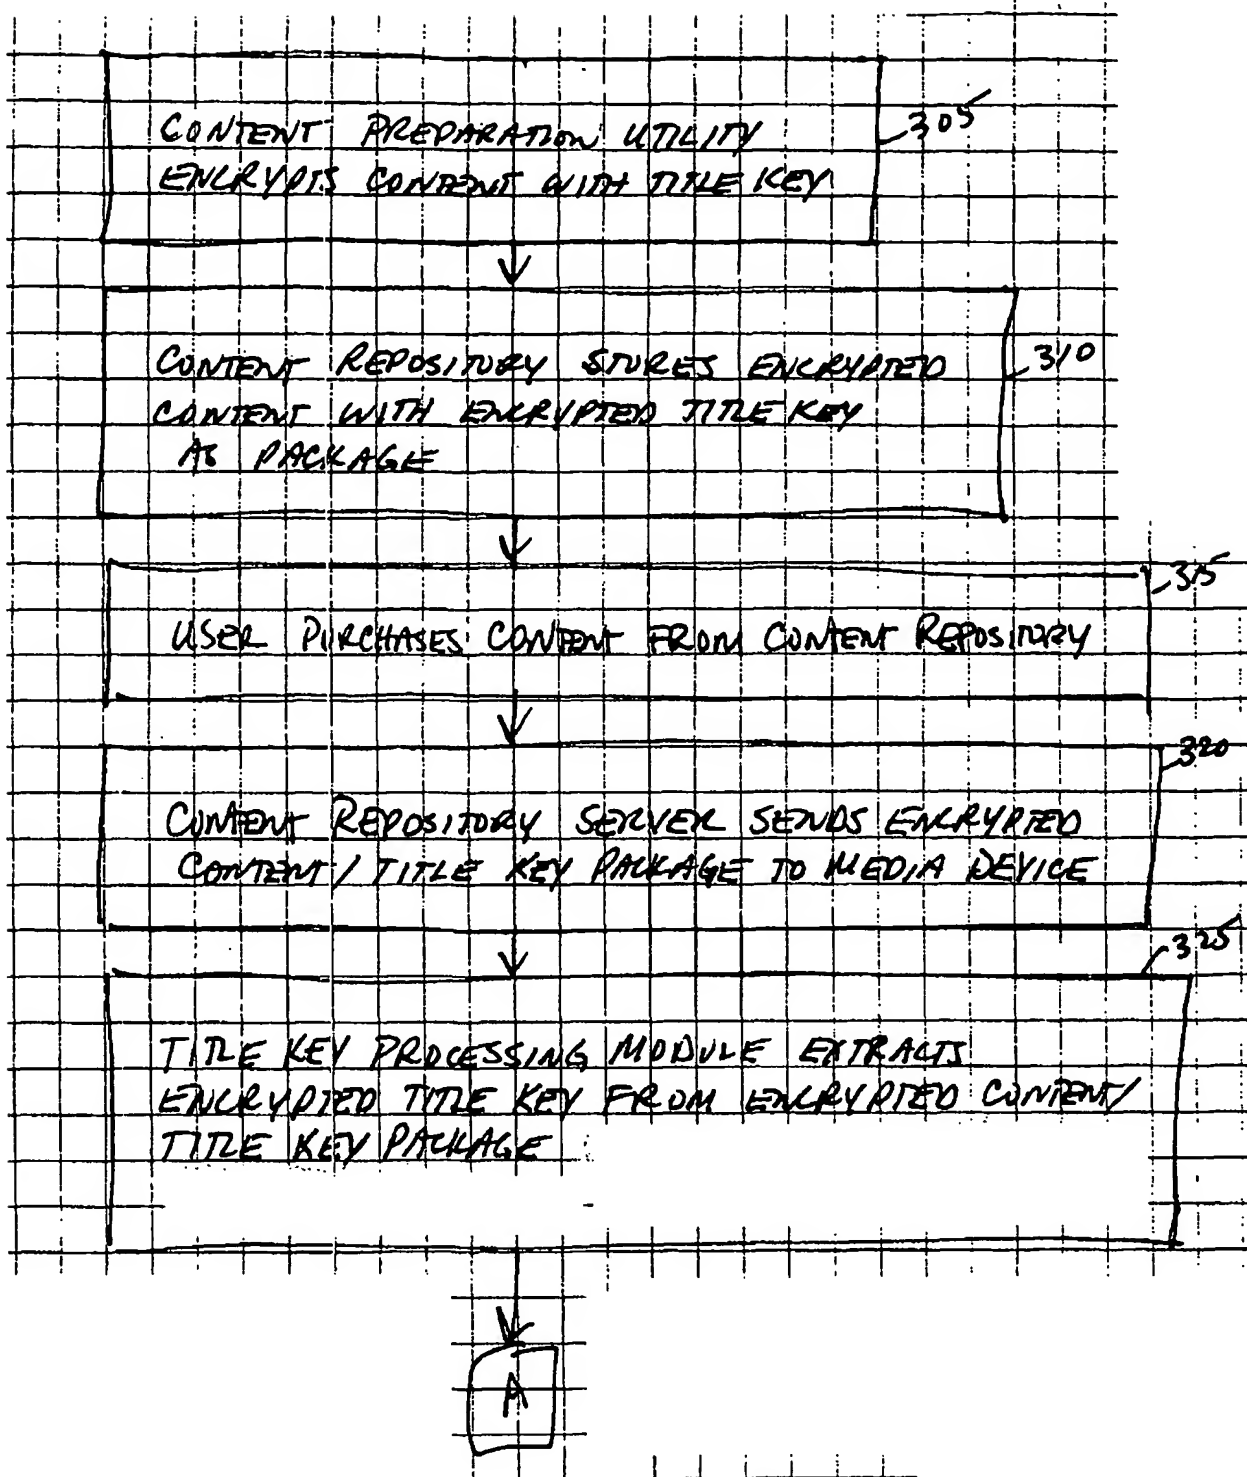 CONTENT PREPARATION UTILITY
305
ENCRYPTS CONTENT WITH TITLE KEY
CONTENT REPOSITORY STORES ENCRYPTED
310
CONTENT WITH ENCRYPTED TITLE KEY
AS PACKAGE
315
USER PURCHASES CONTENT FROM CONTENT REPOSITORY
320
CONTENT REPOSITORY SERVER SENDS ENCRYPTED
CONTENT/TITLE KEY PACKAGE TO MEDIA DEVICE
325
TITLE KEY PROCESSING MODULE EXTRACTS
ENCRYPTED TITLE KEY FROM ENCRYPTED CONTENT/
TITLE KEY PACKAGE
A